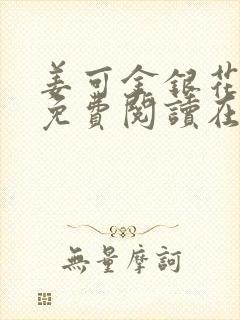 姜可金銀花
免費閱讀在
無量摩訶